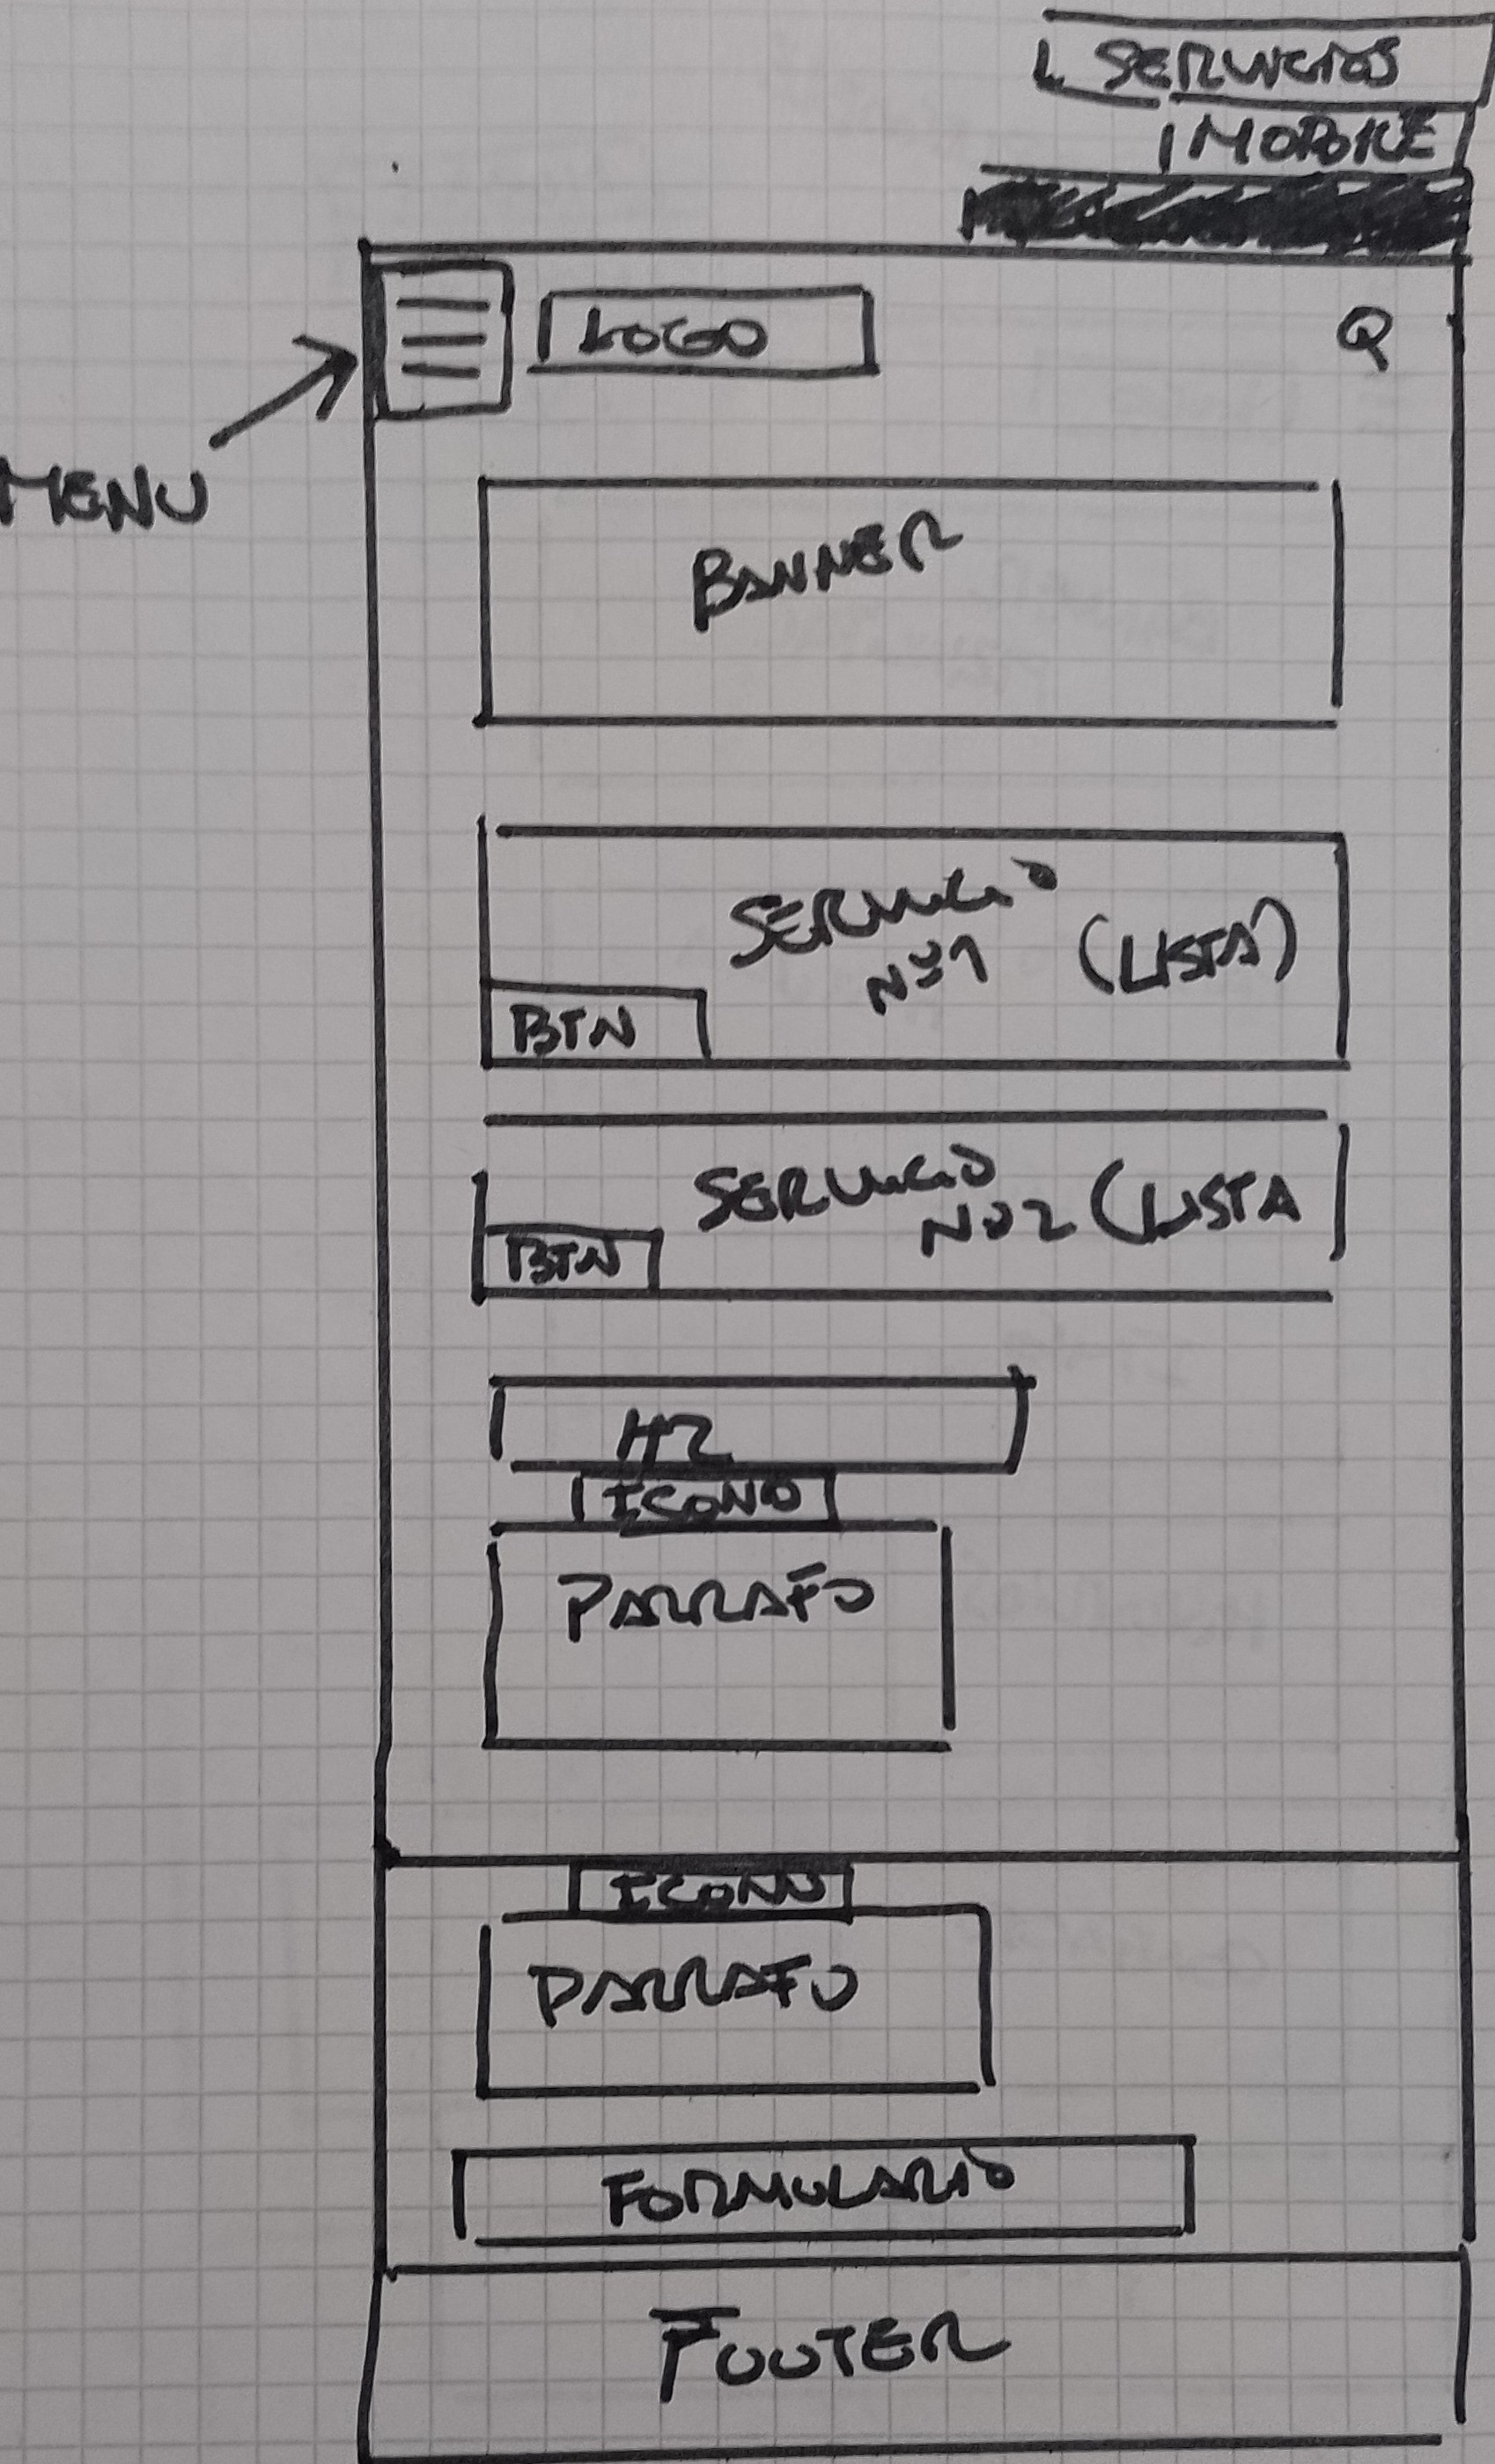 SERVICIOS
MOBILE
LOGO
Q
MENU
BANNER
SERVICIO
Nº1 (LISTA)
BTN
SERVICIO
Nº2 (LISTA
BTN
H2
ICONO
PARRAFO
ICONO
PARRAFO
FORMULARIO
FOOTER